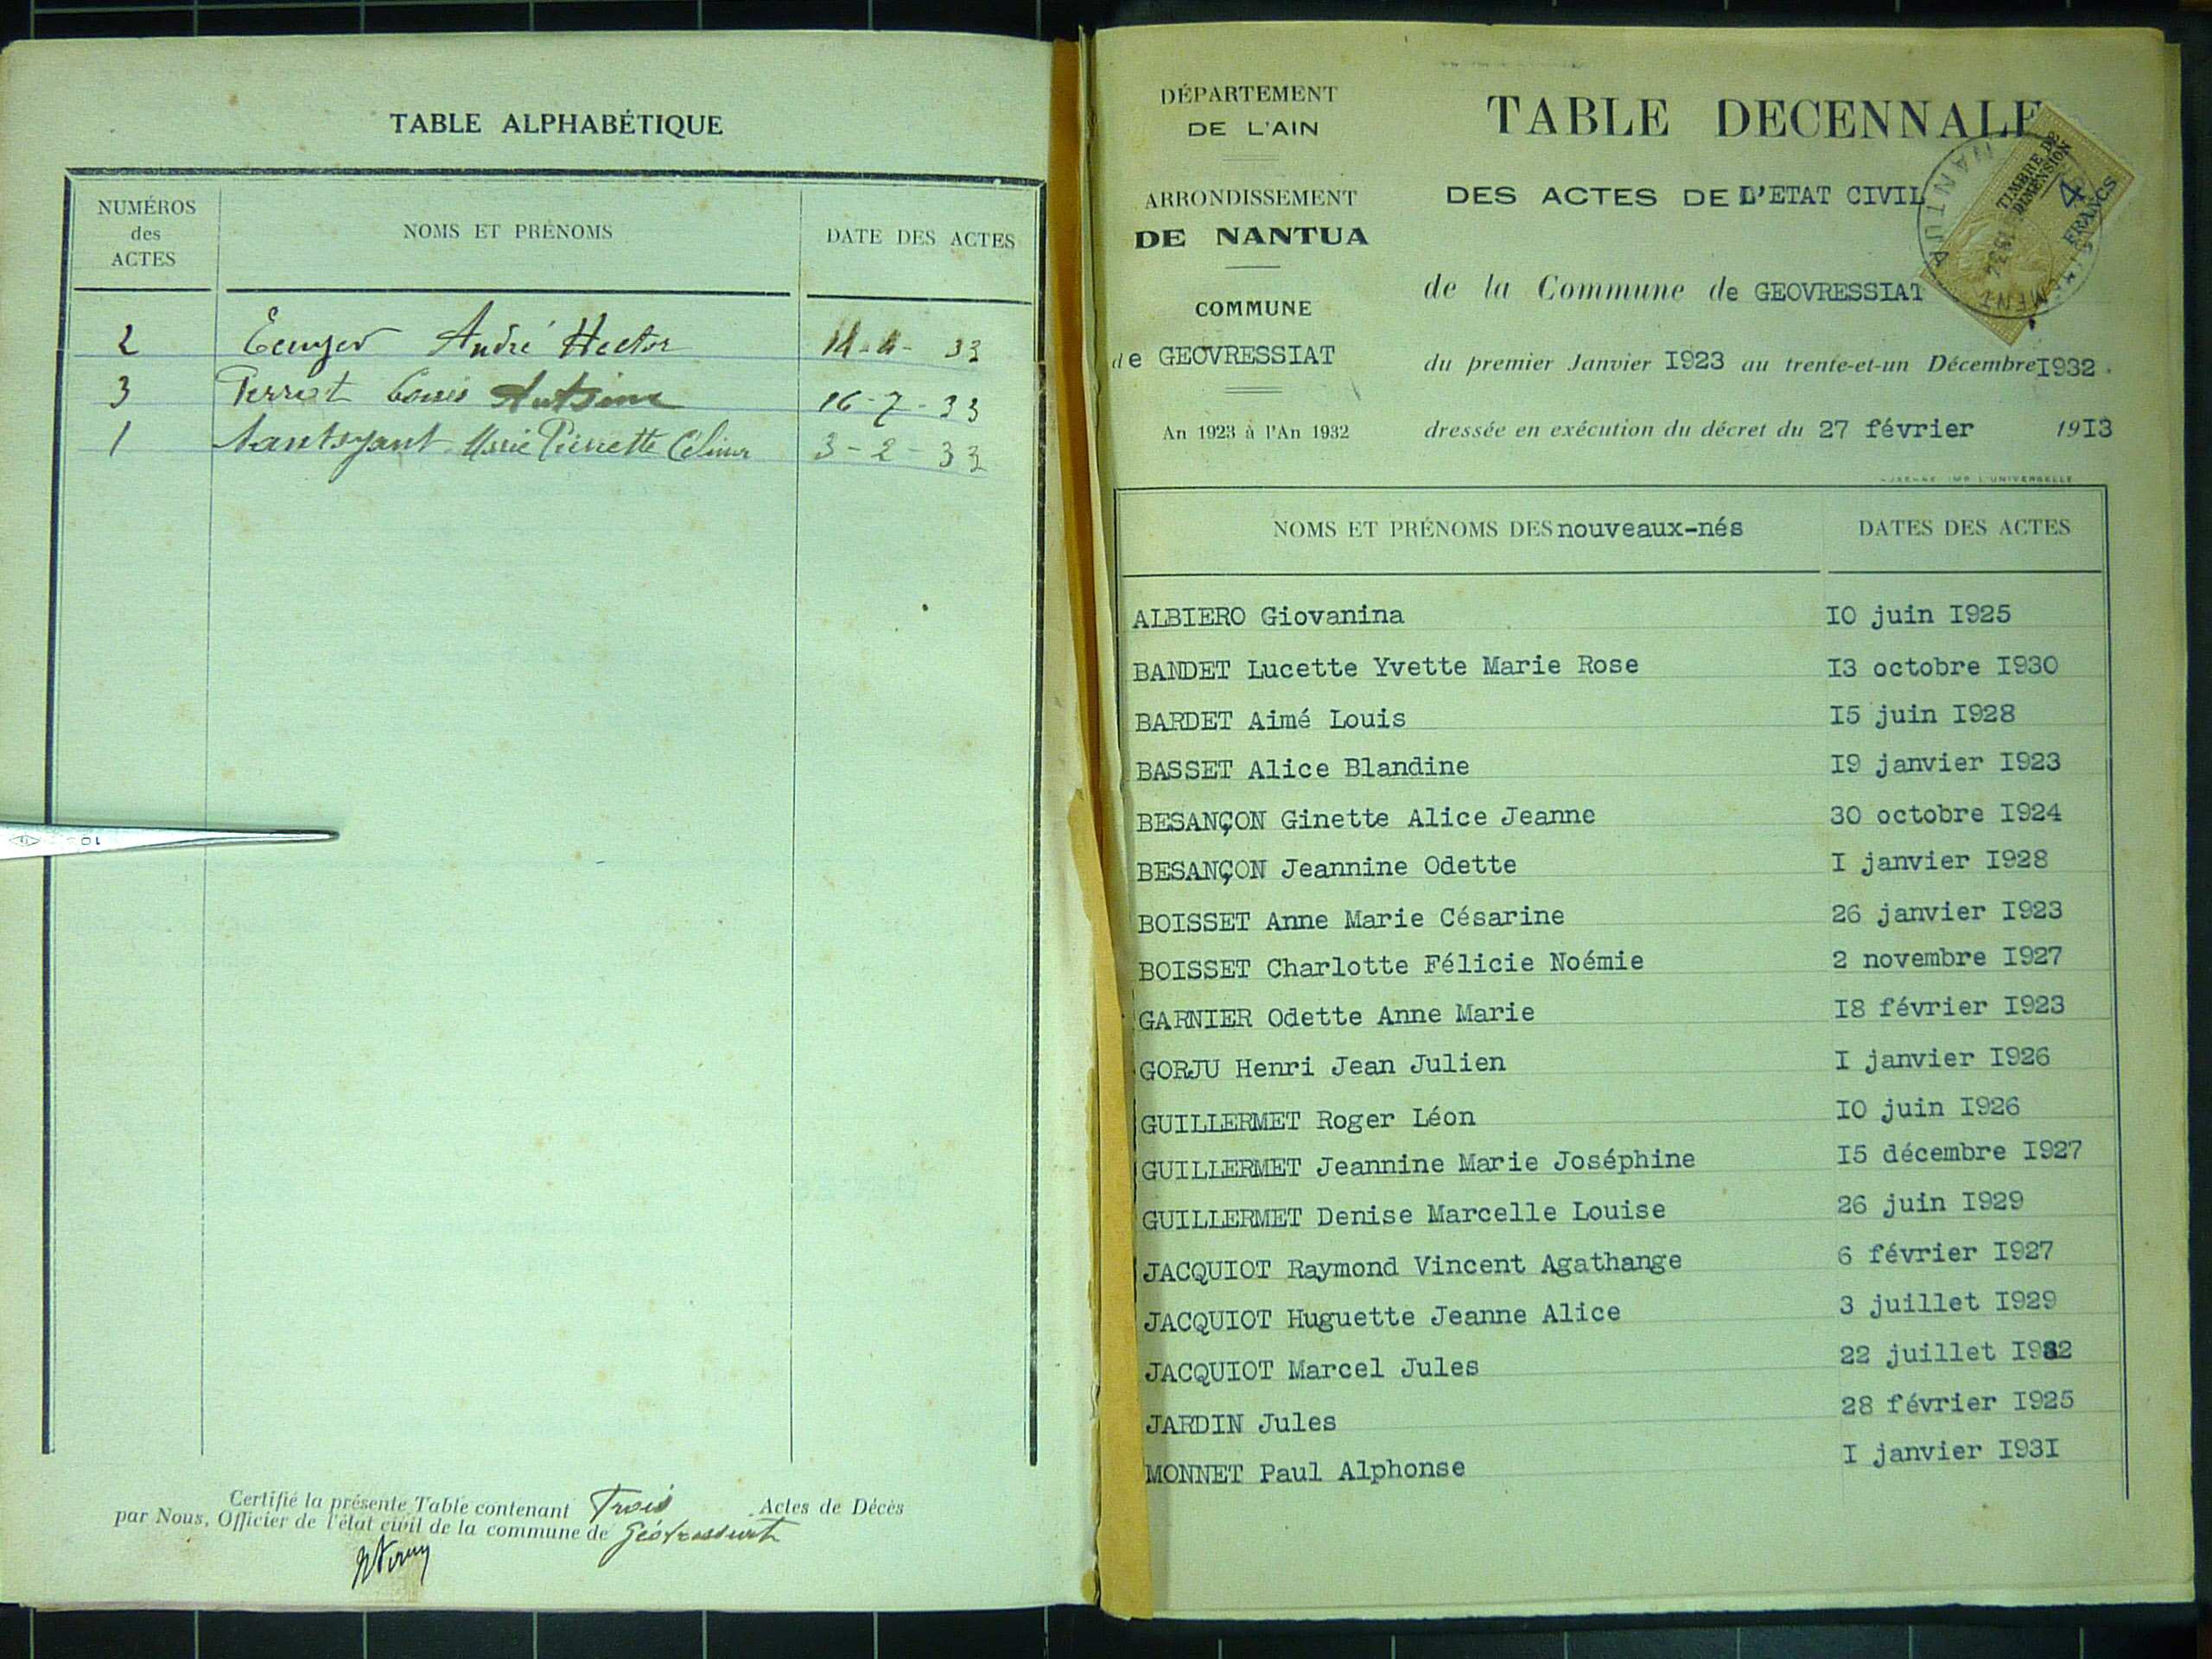 TABLE ALPHABÉTIQUE
NUMÉROS
des
ACTES
NOMS ET PRÉNOMS
DATE DES ACTES
2 André Hector 33
3 Perrot Louis Antoine 16-7-33
1 Marie Pierrette 3-2-33
Certifié la présente Table contenant Trois Actes de Décès
par Nous, Officier de l'état civil de la commune de
DÉPARTEMENT
DE L'AIN
ARRONDISSEMENT
DE NANTUA
COMMUNE
de GEOVRESSIAT
An 1923 à l'An 1932
TABLE DECENNALE
DES ACTES DE L'ETAT CIVIL
de la Commune de GEOVRESSIAT
du premier Janvier I923 au trente-et-un Décembre I932.
dressée en exécution du décret du 27 février 19I3
TIMBRE DE
DIMENSION
4
FRANCS
NANTUA
IMP. L'UNIVERSELLE
NOMS ET PRÉNOMS DES nouveaux-nés
DATES DES ACTES
ALBIERO Giovanina IO juin I925
BANDET Lucette Yvette Marie Rose I3 octobre I930
BARDET Aimé Louis I5 juin I928
BASSET Alice Blandine I9 janvier I923
BESANÇON Ginette Alice Jeanne 30 octobre I924
BESANÇON Jeannine Odette I janvier I928
BOISSET Anne Marie Césarine 26 janvier I923
BOISSET Charlotte Félicie Noémie 2 novembre I927
GARNIER Odette Anne Marie I8 février I923
GORJU Henri Jean Julien I janvier I926
GUILLERMET Roger Léon IO juin I926
GUILLERMET Jeannine Marie Joséphine I5 décembre I927
GUILLERMET Denise Marcelle Louise 26 juin I929
JACQUIOT Raymond Vincent Agathange 6 février I927
JACQUIOT Huguette Jeanne Alice 3 juillet I929
JACQUIOT Marcel Jules 22 juillet I932
JARDIN Jules 28 février I925
MONNET Paul Alphonse I janvier I93I